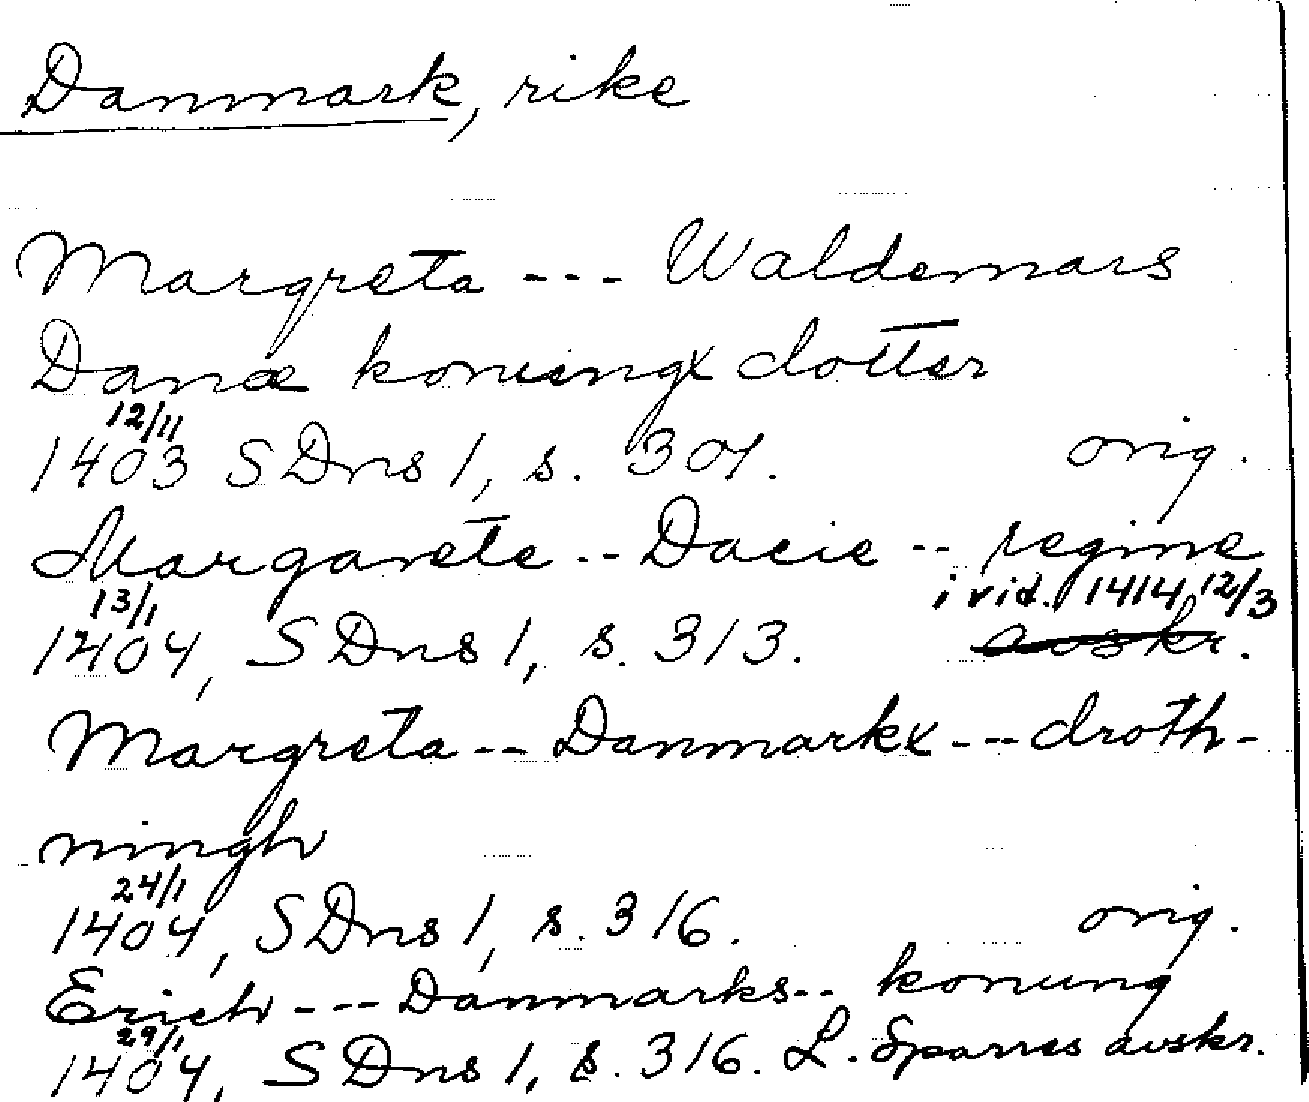 Danmark, rike
Margreta --- Waldemars
Danæ koningx dotter
12/11
1403 SDns 1, s. 301. orig.
Margarete -- Dacie -- regine
13/1 i vid. 1414 12/3
1404, SDns 1, s. 313. avskr.
Margreta -- Danmarkx --- droth-
ningh
24/1
1404, SDns 1, s. 316. orig.
Erich --- Danmarks -- konung
29/1
1404, SDns 1, s. 316. L. Sparres avskr.